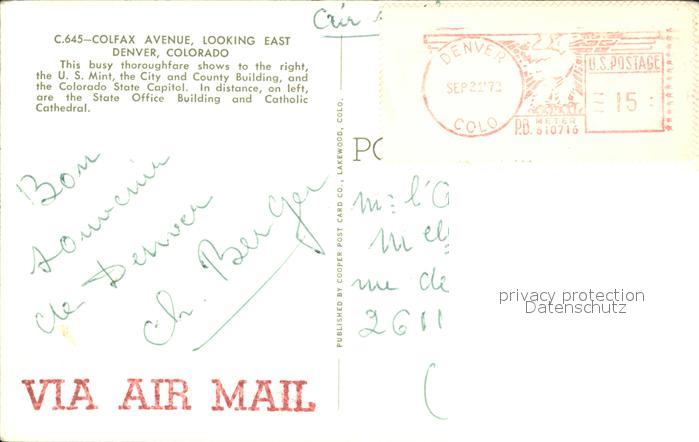 C.645—COLFAX AVENUE, LOOKING EAST
DENVER, COLORADO
This busy thoroughfare shows to the right,
the U. S. Mint, the City and County Building, and
the Colorado State Capitol. In distance, on left,
are the State Office Building and Catholic
Cathedral.
Bon
souvenir
de Denver
Ch. Berger
VIA AIR MAIL
PUBLISHED BY COOPER POST CARD CO., LAKEWOOD, COLO.
DENVER
COLO
U.S. POSTAGE
15
P.B. METER
610716
PO
privacy protection
Datenschutz